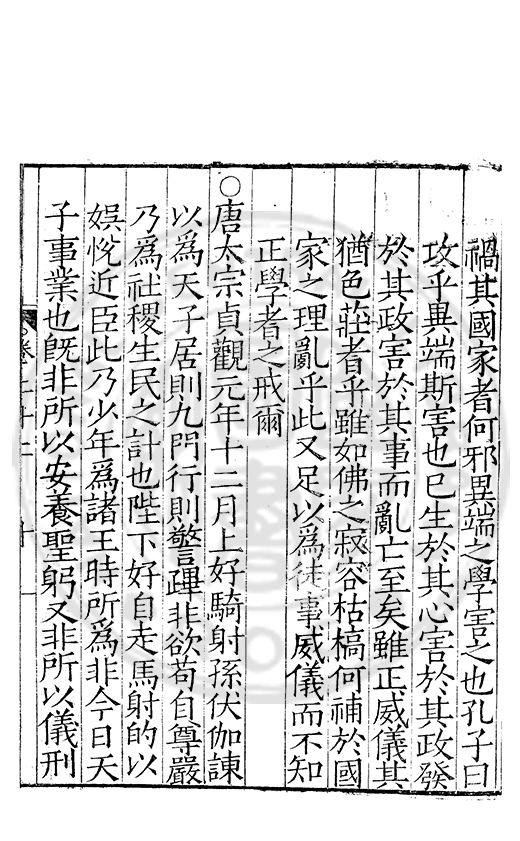 禍其國家者何邪異端之學害之也孔子曰
攻乎異端斯害也已生於其心害於其政發
於其政害於其事而亂亡至矣雖正威儀其
猶色莊者乎雖如佛之寂容枯槁何補於國
家之理亂乎此又足以爲徒事威儀而不知
正學者之戒爾
○唐太宗貞觀元年十二月上好騎射孫伏伽諫
以為天子居則九門行則警蹕非欲苟自尊嚴
乃為社稷生民之計也陛下好自走馬射的以
娛悅近臣此乃少年為諸王時所為非今日天
子事業也旣非所以安養聖躬又非所以儀刑
卷二十二 十